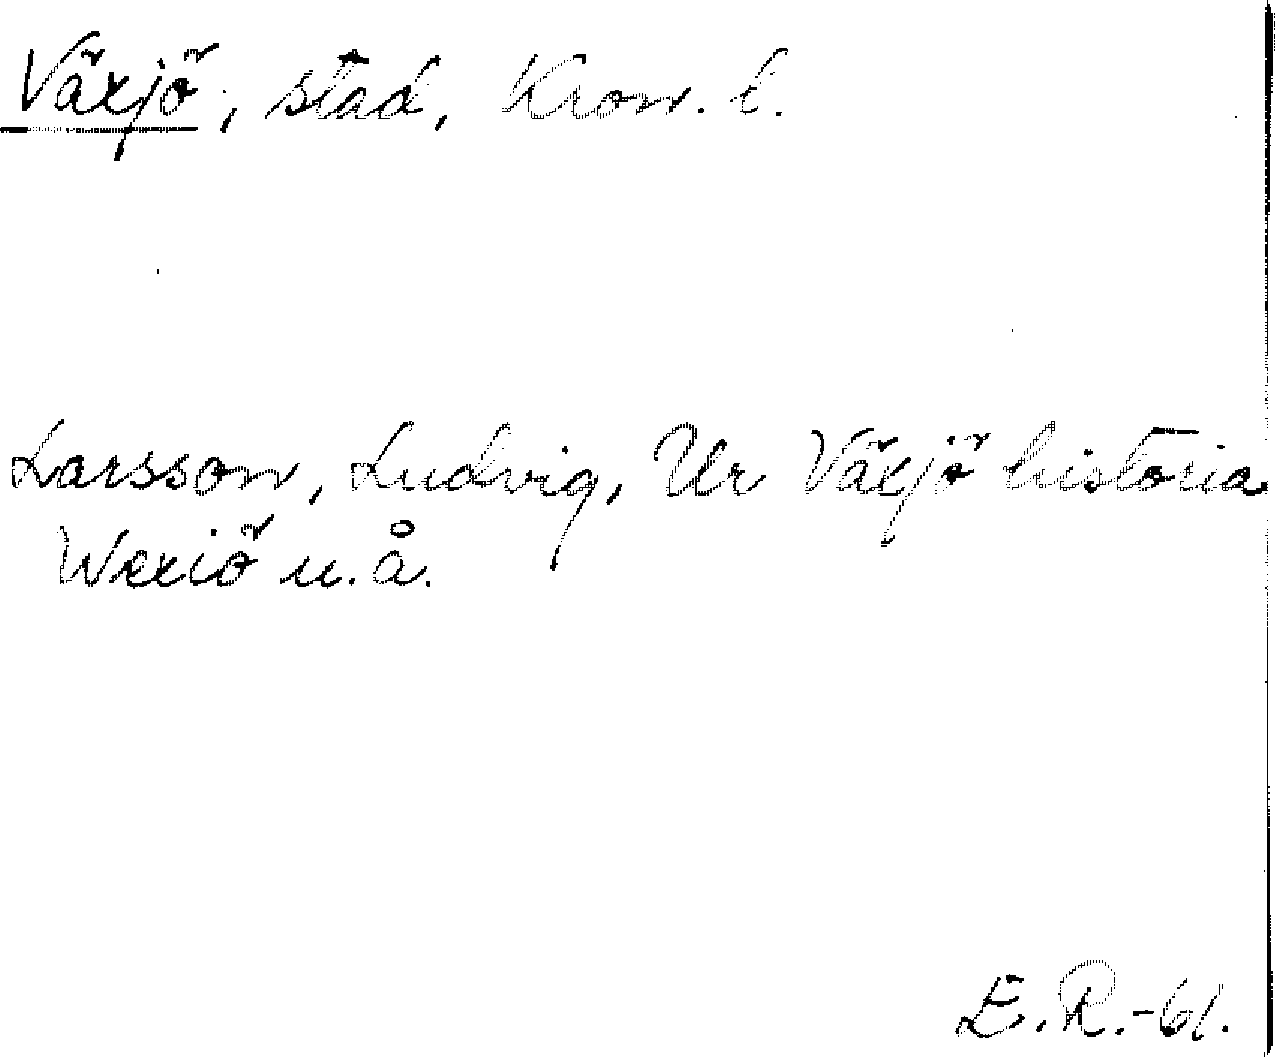 Växjö, stad, Kron. l.
Larsson, Ludvig, Ur Växjö historia
Wexiö u.å.
E.R.-61.